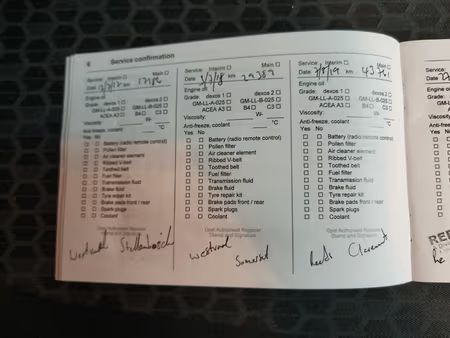 6
Service confirmation
Service: Interim □ Main □
Date km 17182
Engine oil
Grade: dexos 1 □ dexos 2 □
GM-LL-A-025 □ GM-LL-B-025 □
ACEA A3 □ B4 □ C3 □
Viscosity: W-
Anti-freeze, coolant °C
Yes No
□ □ Battery (radio remote control)
□ □ Pollen filter
□ □ Air cleaner element
□ □ Ribbed V-belt
□ □ Toothed belt
□ □ Fuel filter
□ □ Transmission fluid
□ □ Brake fluid
□ □ Tyre repair kit
□ □ Brake pads front / rear
□ □ Spark plugs
□ □ Coolant
Opel Authorised Repairer
Stamp and Signature
Stellenbosch
Service: Interim □ Main □
Date 3/7/18 km 29389
Engine oil
Grade: dexos 1 □ dexos 2 □
GM-LL-A-025 □ GM-LL-B-025 □
ACEA A3 □ B4 □ C3 □
Viscosity: W-
Anti-freeze, coolant °C
Yes No
□ □ Battery (radio remote control)
□ □ Pollen filter
□ □ Air cleaner element
□ □ Ribbed V-belt
□ □ Toothed belt
□ □ Fuel filter
□ □ Transmission fluid
□ □ Brake fluid
□ □ Tyre repair kit
□ □ Brake pads front / rear
□ □ Spark plugs
□ □ Coolant
Opel Authorised Repairer
Stamp and Signature
Westvaal
Somerset
Service: Interim □ Main □
Date 7/8/19 km 43761
Engine oil
Grade: dexos 1 □ dexos 2 □
GM-LL-A-025 □ GM-LL-B-025 □
ACEA A3 □ B4 □ C3 □
Viscosity: W-
Anti-freeze, coolant °C
Yes No
□ □ Battery (radio remote control)
□ □ Pollen filter
□ □ Air cleaner element
□ □ Ribbed V-belt
□ □ Toothed belt
□ □ Fuel filter
□ □ Transmission fluid
□ □ Brake fluid
□ □ Tyre repair kit
□ □ Brake pads front / rear
□ □ Spark plugs
□ □ Coolant
Opel Authorised Repairer
Stamp and Signature
Reeds Claremont
Service:
Date
Engine oil
Grade:
Viscosity:
Anti-freeze,
Yes No